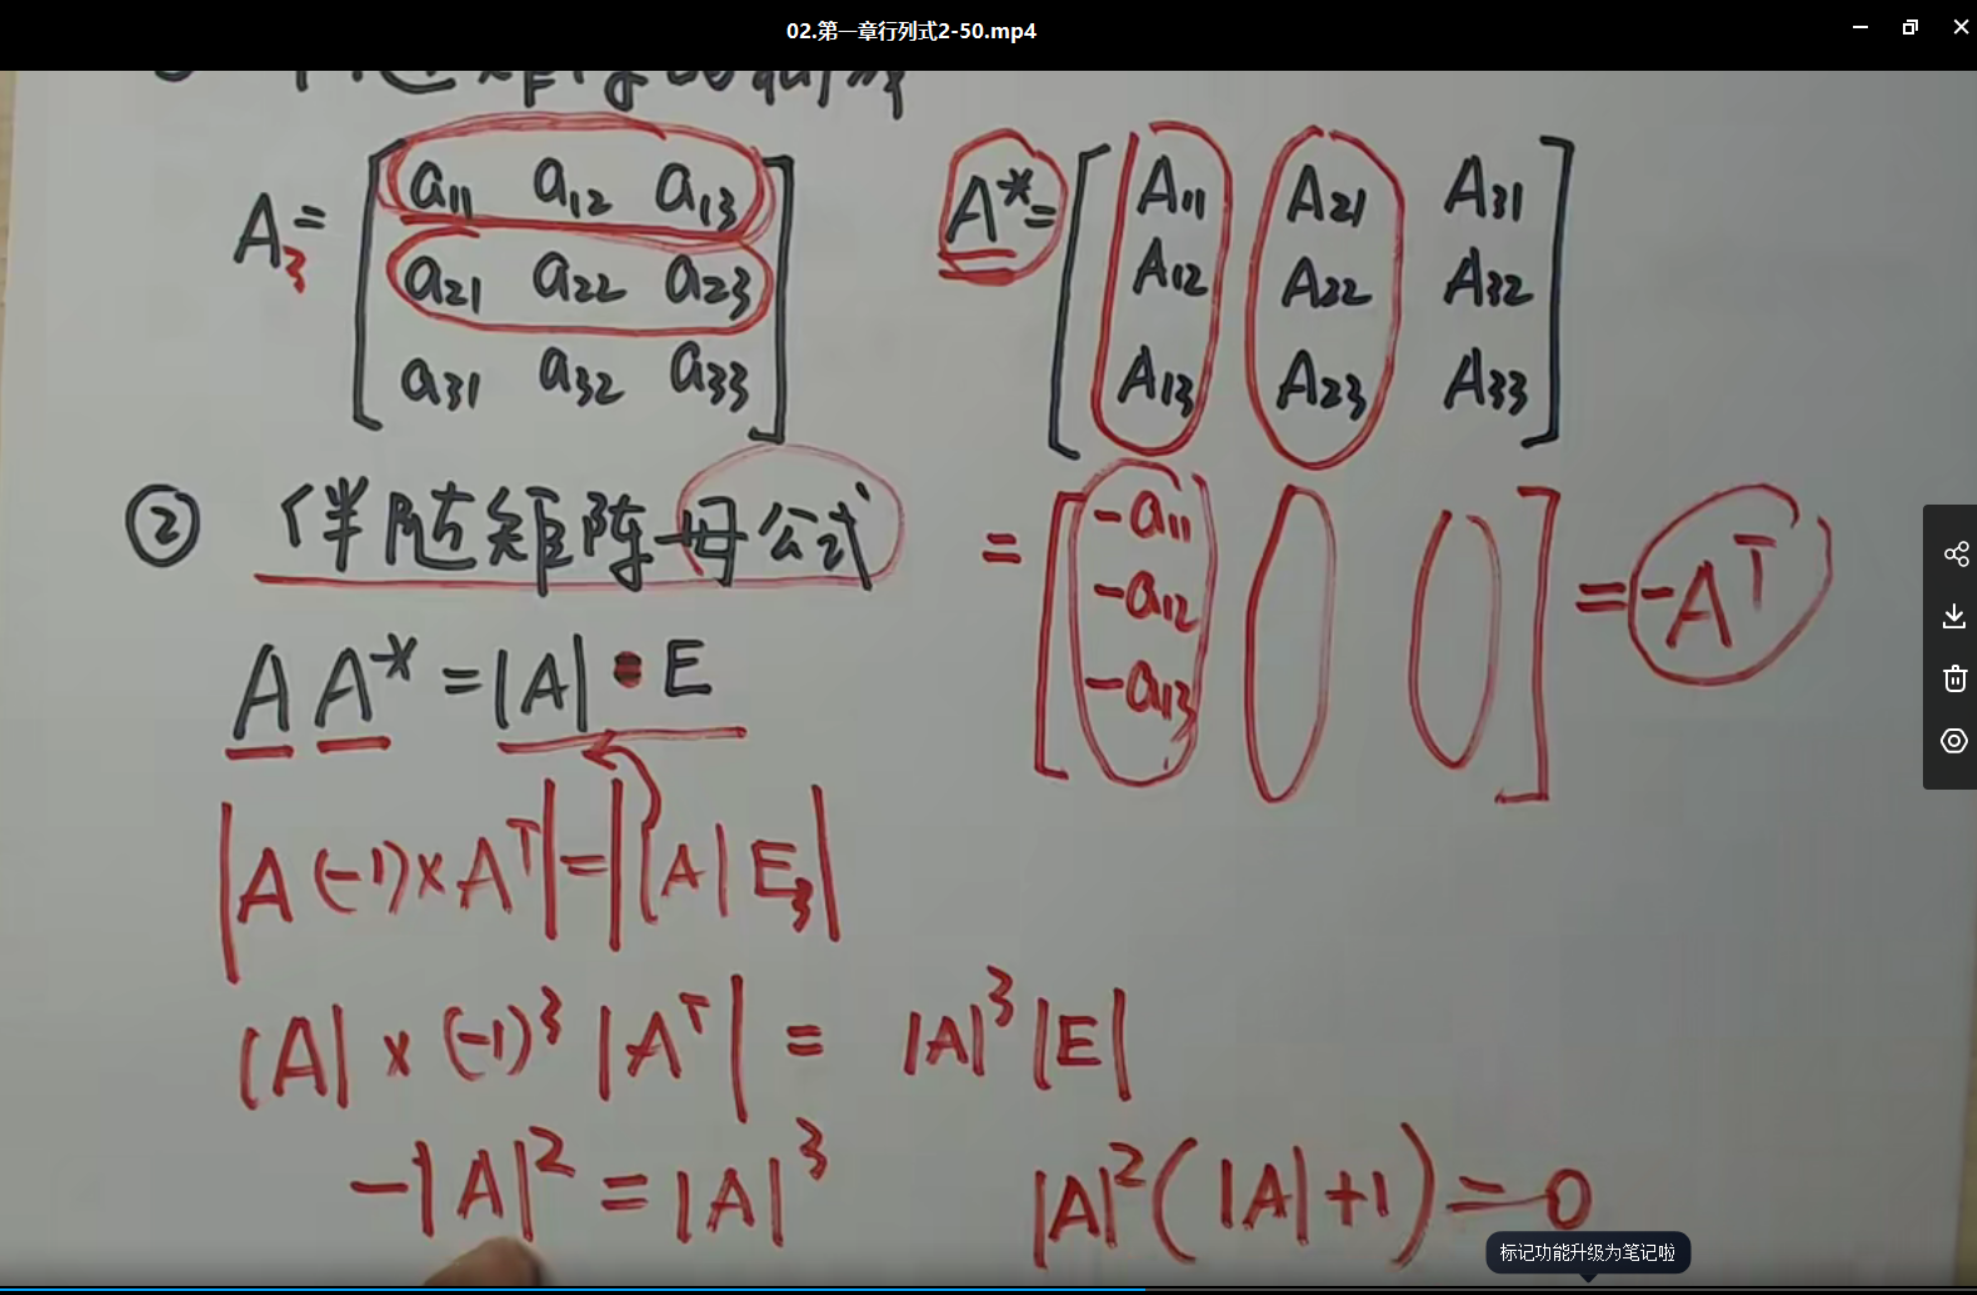 02.第一章行列式2-50.mp4
A₃ = [ a₁₁ a₁₂ a₁₃
a₂₁ a₂₂ a₂₃
a₃₁ a₃₂ a₃₃ ]
A* = [ A₁₁ A₂₁ A₃₁
A₁₂ A₂₂ A₃₂
A₁₃ A₂₃ A₃₃ ]
= [ -a₁₁
-a₁₂
-a₁₃ ] = -Aᵀ
② 伴随矩阵母公式
A A* = |A| · E
|A (-1)×Aᵀ| = ||A| E₃|
|A| × (-1)³ |Aᵀ| = |A|³ |E|
-|A|² = |A|³ |A|² (|A|+1) = 0
标记功能升级为笔记啦